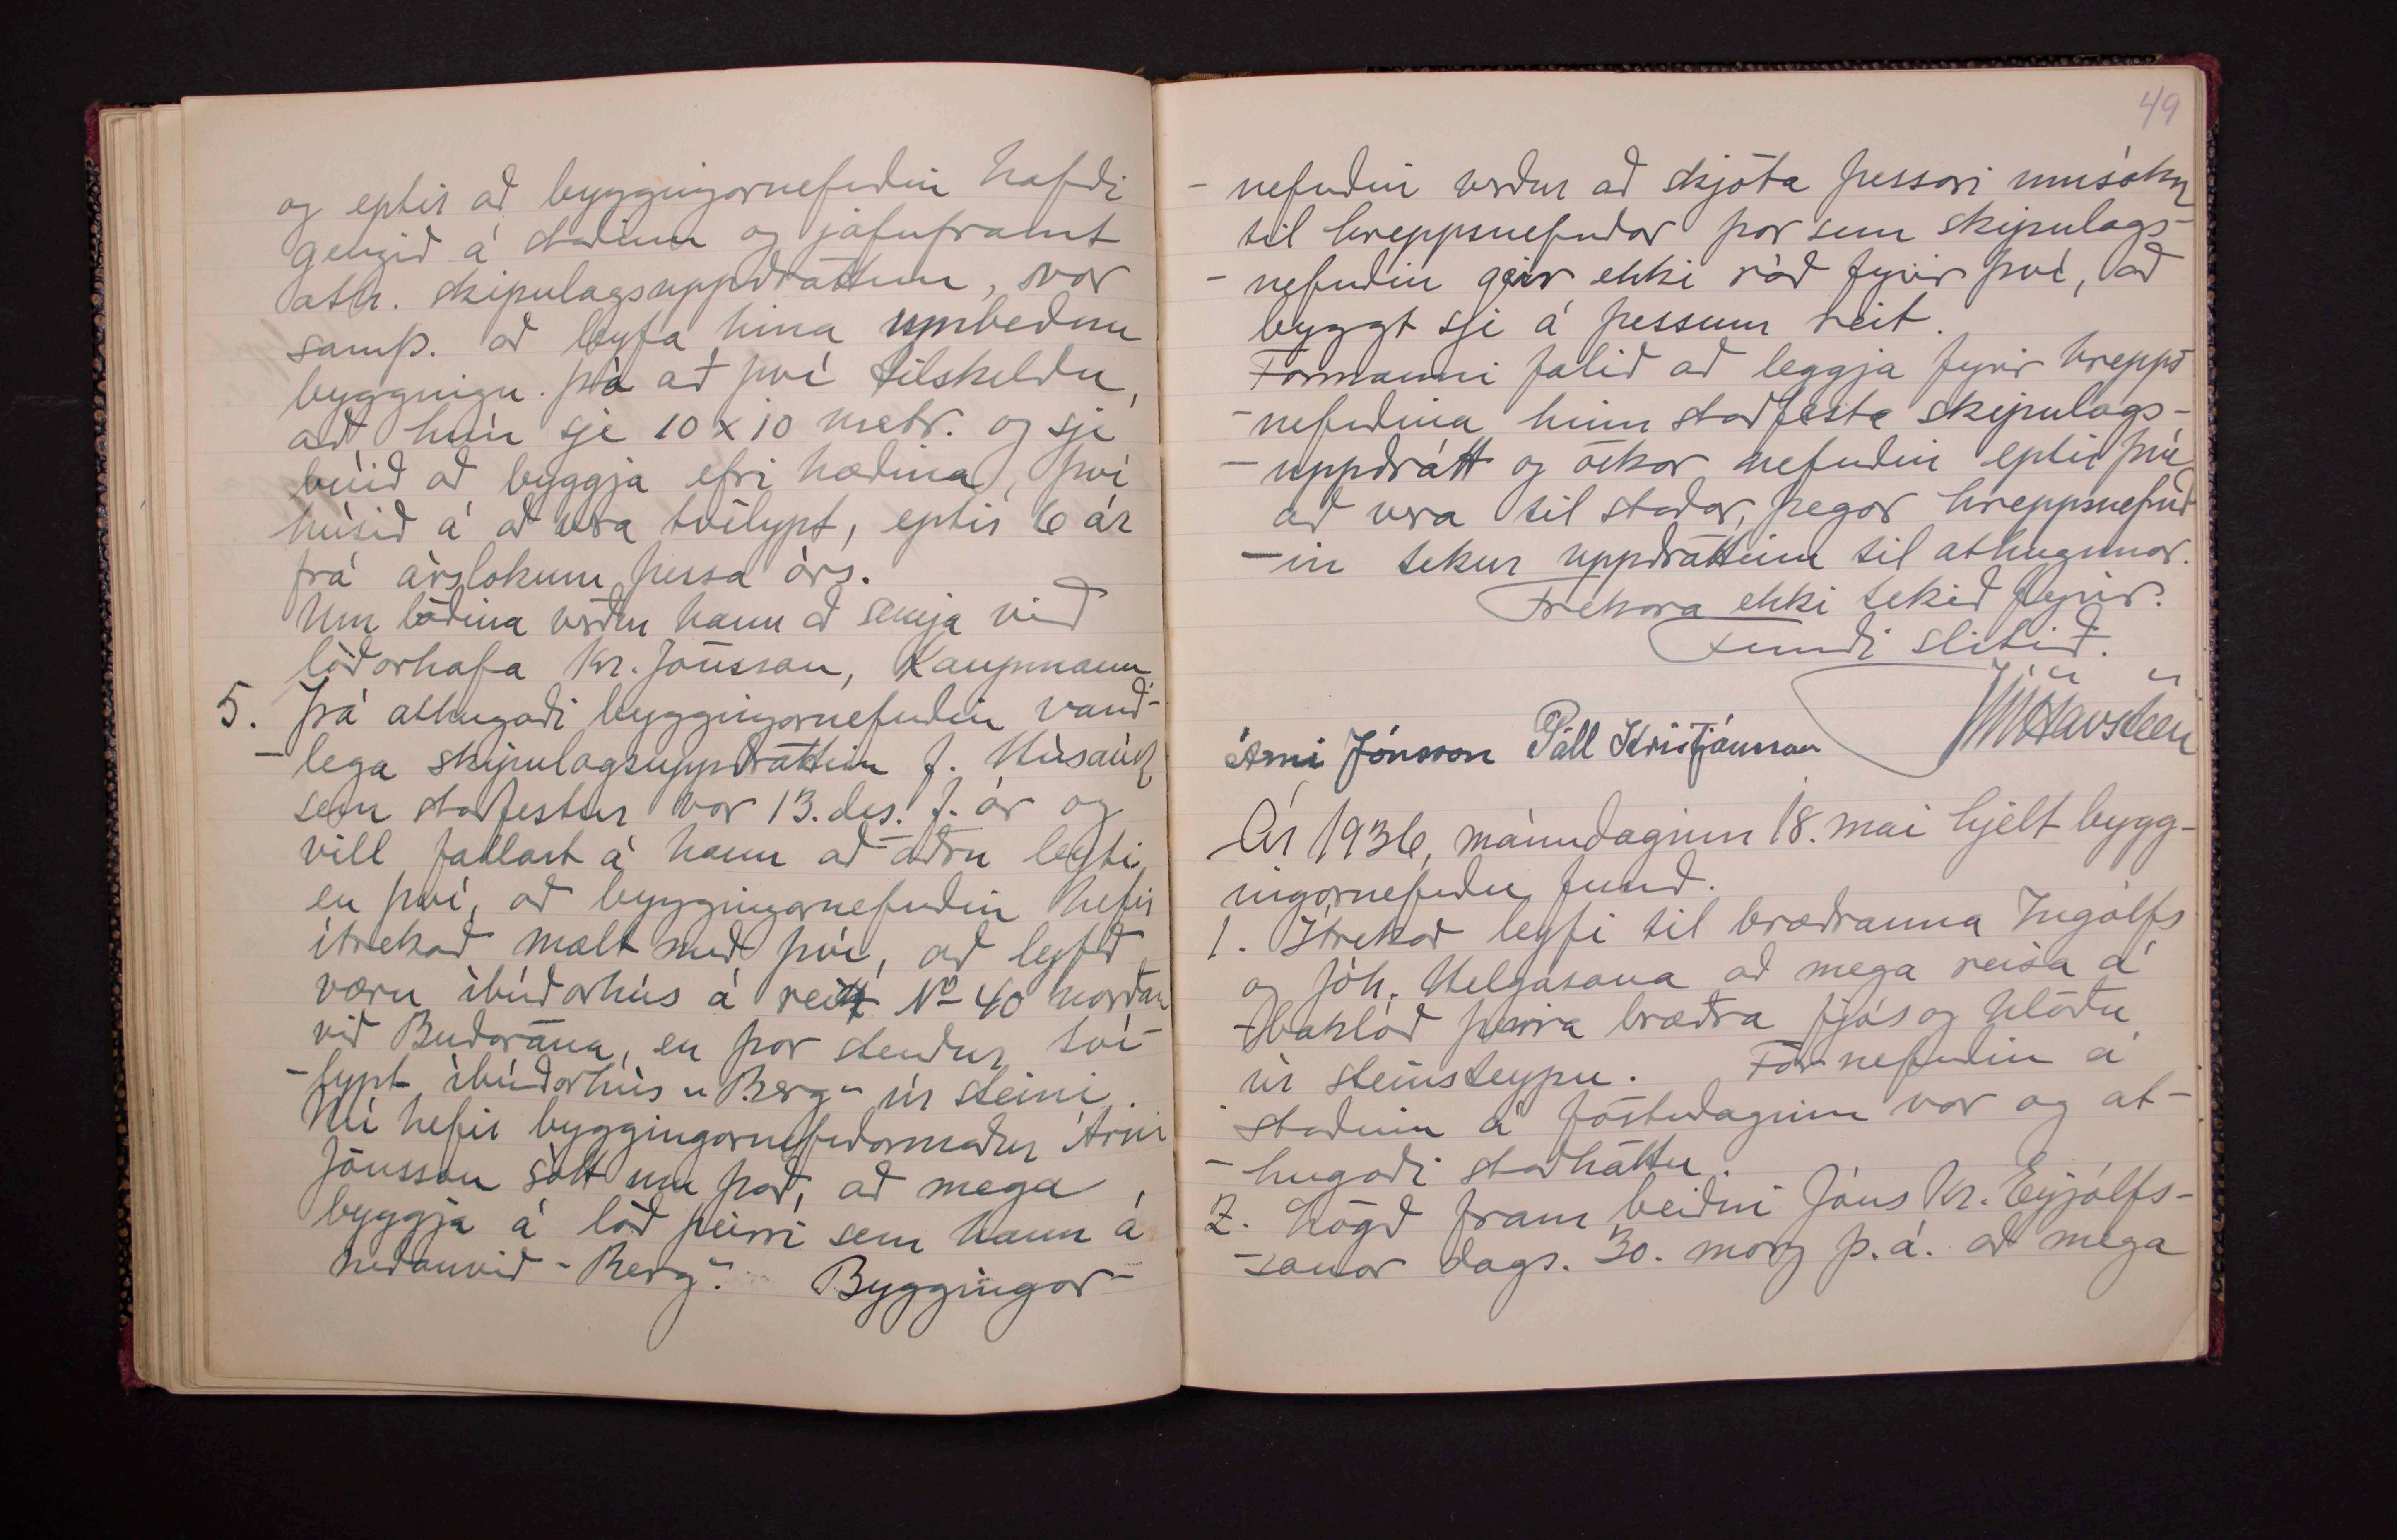 og eptir að byggingarnefndin hafði
gengið á staðinn og jafnframt
ath. skipulagsuppdráttinn, var
samþ. að leyfa hina umbeðnu
byggingu þó að því tilskildu,
að hún sje 10 x 10 metr. og sje
búið að byggja efri hæðina, því
húsið á að vera tvílypt, eptir 6 ár
frá árslokum þessa árs.
Um lóðina verður hann að semja við
lóðarhafa Kr. Jónsson, Kaupmann.
5. Þá athugaði byggingarnefndin vand-
-lega skipulagsuppdráttinn f. Húsavík
sem staðfestur var 13. des. f. ár og
vill fallast á hann að öðru leyti
en því, að byggingarnefndin hefir
ítrekað mælt með því, að leyfð
væru íbúðarhús á reit No 40 norðan
við Buðarána, en þar stendur tví-
-lypt íbúðarhús "Berg" úr steini.
Nú hefir byggingarnefndarmaður Árni
Jónsson sótt um það, að mega
byggja á lóð þeirri sem hann á
neðanvið "Berg". Byggingar-
49
-nefndin verður að skjóta þessari umsókn
til hreppsnefndar þar sem skipulags-
-nefndin gjör ekki ráð fyrir því, að
byggt sje á þessum reit.
Formanni falið að leggja fyrir hrepps
-nefndina hinn staðfesta skipulags-
-uppdrátt og óskar nefndin eptir því
að vera til staðar, þegar hreppsnefnd
-in tekur uppdráttinn til athugunar.
Frekara ekki tekið fyrir.
Fundi slitið.
JHavsteen
Árni Jónsson Páll Kristjánsson
Ár 1936, mánudaginn 18. mai hjelt bygg-
ingarnefndin fund.
1. Ítrekað leyfi til bræðranna Ingólfs
og Jóh. Helgasona að mega reisa á
-baklóð þeirra bræðra fjós og hlöðu
úr steinsteypu. Fór nefndin á
staðinn á föstudaginn var og at-
-hugaði staðháttu.
2. Lögð fram beiðni Jóns Kr. Eyjólfs-
-sonar dags. 30. marz þ. á. að mega